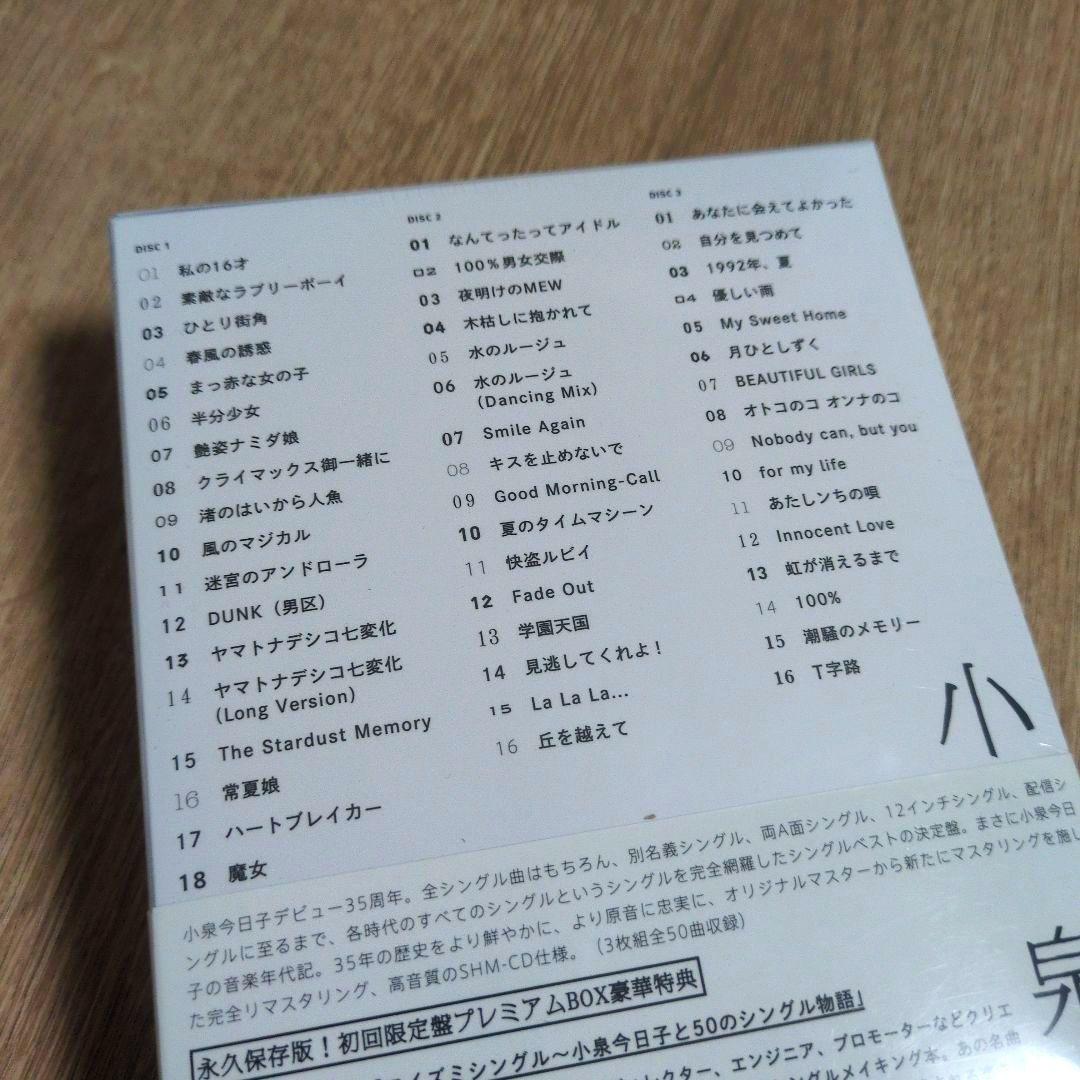 DISC 1
01 私の16才
02 素敵なラブリーボーイ
03 ひとり街角
04 春風の誘惑
05 まっ赤な女の子
06 半分少女
07 艶姿ナミダ娘
08 クライマックス御一緒に
09 渚のはいから人魚
10 風のマジカル
11 迷宮のアンドローラ
12 DUNK（男区）
13 ヤマトナデシコ七変化
14 ヤマトナデシコ七変化
(Long Version)
15 The Stardust Memory
16 常夏娘
17 ハートブレイカー
18 魔女
DISC 2
01 なんてったってアイドル
02 100％男女交際
03 夜明けのMEW
04 木枯しに抱かれて
05 水のルージュ
06 水のルージュ
(Dancing Mix)
07 Smile Again
08 キスを止めないで
09 Good Morning-Call
10 夏のタイムマシーン
11 快盗ルビイ
12 Fade Out
13 学園天国
14 見逃してくれよ！
15 La La La...
16 丘を越えて
DISC 3
01 あなたに会えてよかった
02 自分を見つめて
03 1992年、夏
04 優しい雨
05 My Sweet Home
06 月ひとしずく
07 BEAUTIFUL GIRLS
08 オトコのコ オンナのコ
09 Nobody can, but you
10 for my life
11 あたしンちの唄
12 Innocent Love
13 虹が消えるまで
14 100%
15 潮騒のメモリー
16 T字路
小
泉
小泉今日子デビュー35周年。全シングル曲はもちろん、別名義シングル、両A面シングル、12インチシングル、配信シ
ングルに至るまで、各時代のすべてのシングルというシングルを完全網羅したシングルベストの決定盤。まさに小泉今日
子の音楽年代記。35年の歴史をより鮮やかに、より原音に忠実に、オリジナルマスターから新たにマスタリングを施し
た完全リマスタリング、高音質のSHM-CD仕様。（3枚組全50曲収録）
永久保存版！初回限定盤プレミアムBOX豪華特典
イズミシングル～小泉今日子と50のシングル物語」
レクター、エンジニア、プロモーターなどクリエ
ングルメイキング本。あの名曲